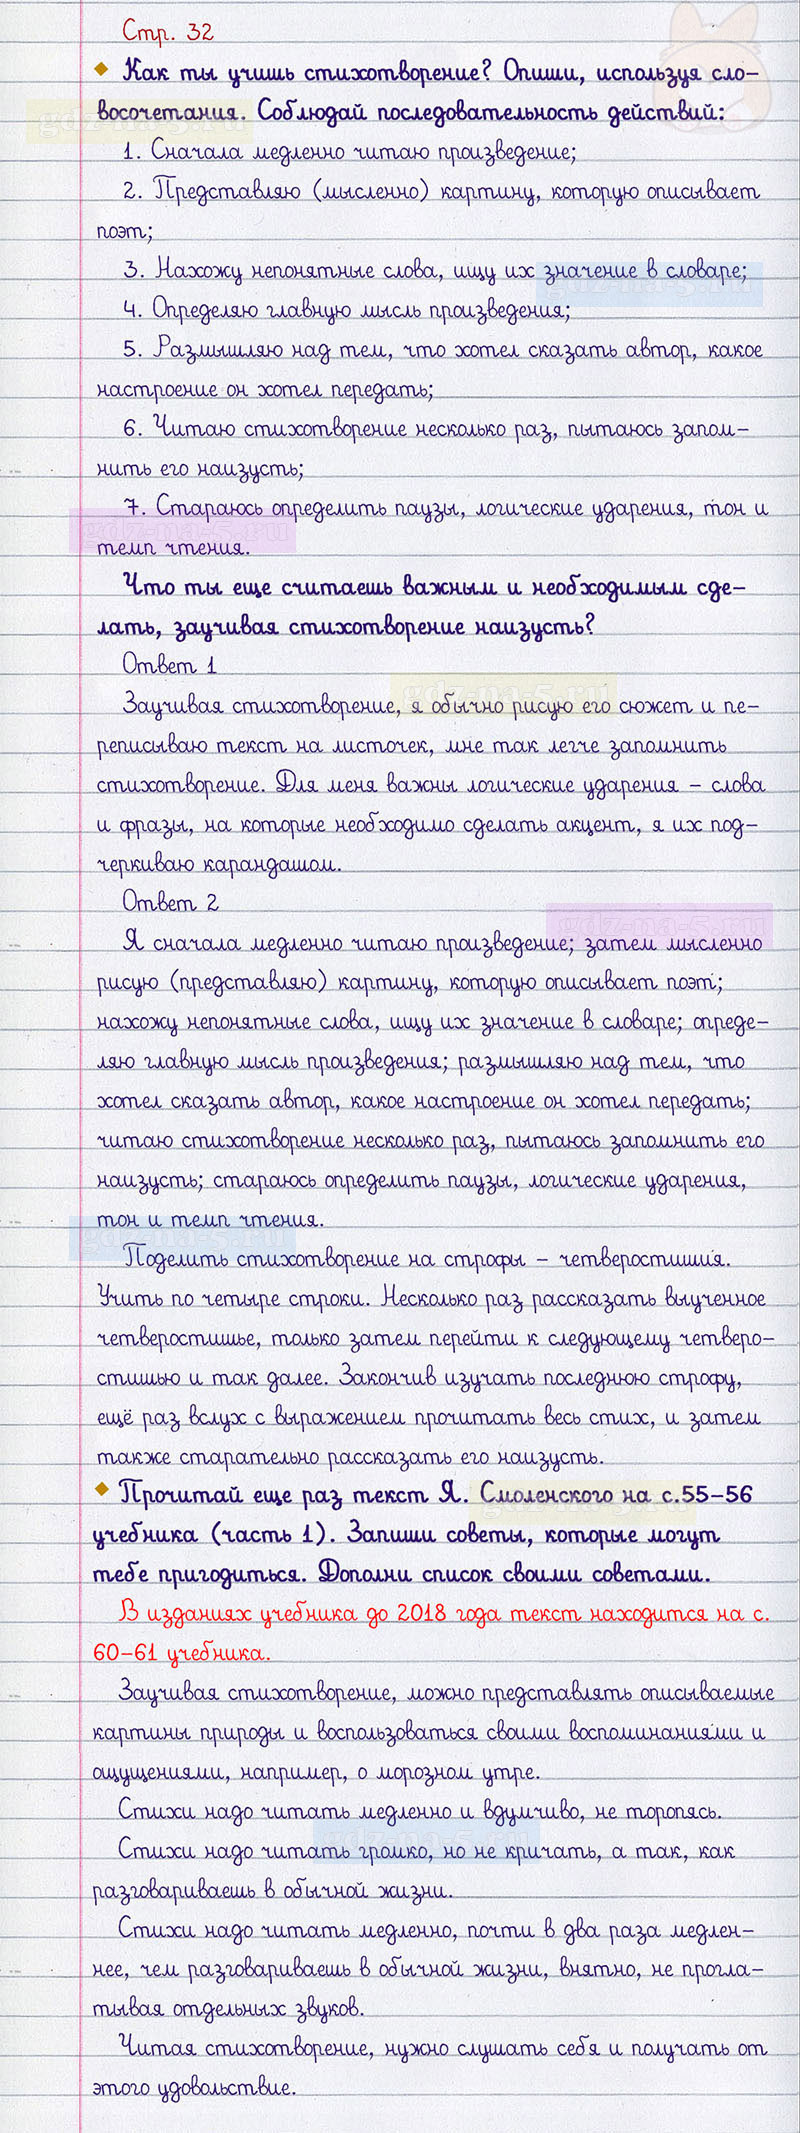 Стр. 32
Как ты учишь стихотворение? Опиши, используя сло-
восочетания. Соблюдай последовательность действий:
gdz-na-5.ru
1. Сначала медленно читаю произведение;
2. Представляю (мысленно) картину, которую описывает
поэт;
3. Нахожу непонятные слова, ищу их значение в словаре;
gdz-na-5.ru
4. Определяю главную мысль произведения;
5. Размышляю над тем, что хотел сказать автор, какое
настроение он хотел передать;
6. Читаю стихотворение несколько раз, пытаюсь запом-
нить его наизусть;
7. Стараюсь определить паузы, логические ударения, тон и
gdz-na-5.ru
темп чтения.
Что ты еще считаешь важным и необходимым сде-
лать, заучивая стихотворение наизусть?
Ответ 1
gdz-na-5.ru
Заучивая стихотворение, я обычно рисую его сюжет и пе-
реписываю текст на листочек, мне так легче запомнить
стихотворение. Для меня важны логические ударения – слова
и фразы, на которые необходимо сделать акцент, я их под-
черкиваю карандашом.
Ответ 2
gdz-na-5.ru
Я сначала медленно читаю произведение; затем мысленно
рисую (представляю) картину, которую описывает поэт;
нахожу непонятные слова, ищу их значение в словаре; опреде-
ляю главную мысль произведения; размышляю над тем, что
хотел сказать автор, какое настроение он хотел передать;
читаю стихотворение несколько раз, пытаюсь запомнить его
наизусть; стараюсь определить паузы, логические ударения,
тон и темп чтения.
gdz-na-5.ru
Поделить стихотворение на строфы – четверостишия.
Учить по четыре строки. Несколько раз рассказать выученное
четверостишье, только затем перейти к следующему четверо-
стишью и так далее. Закончив изучать последнюю строфу,
ещё раз вслух с выражением прочитать весь стих, и затем
также старательно рассказать его наизусть.
Прочитай еще раз текст Я. Смоленского на с.55-56
gdz-na-5.ru
учебника (часть 1). Запиши советы, которые могут
тебе пригодиться. Дополни список своими советами.
В изданиях учебника до 2018 года текст находится на с.
60-61 учебника.
Заучивая стихотворение, можно представлять описываемые
картины природы и воспользоваться своими воспоминаниями и
ощущениями, например, о морозном утре.
Стихи надо читать медленно и вдумчиво, не торопясь.
gdz-na-5.ru
Стихи надо читать громко, но не кричать, а так, как
разговариваешь в обычной жизни.
Стихи надо читать медленно, почти в два раза медлен-
нее, чем разговариваешь в обычной жизни, внятно, не прогла-
тывая отдельных звуков.
Читая стихотворение, нужно слушать себя и получать от
этого удовольствие.